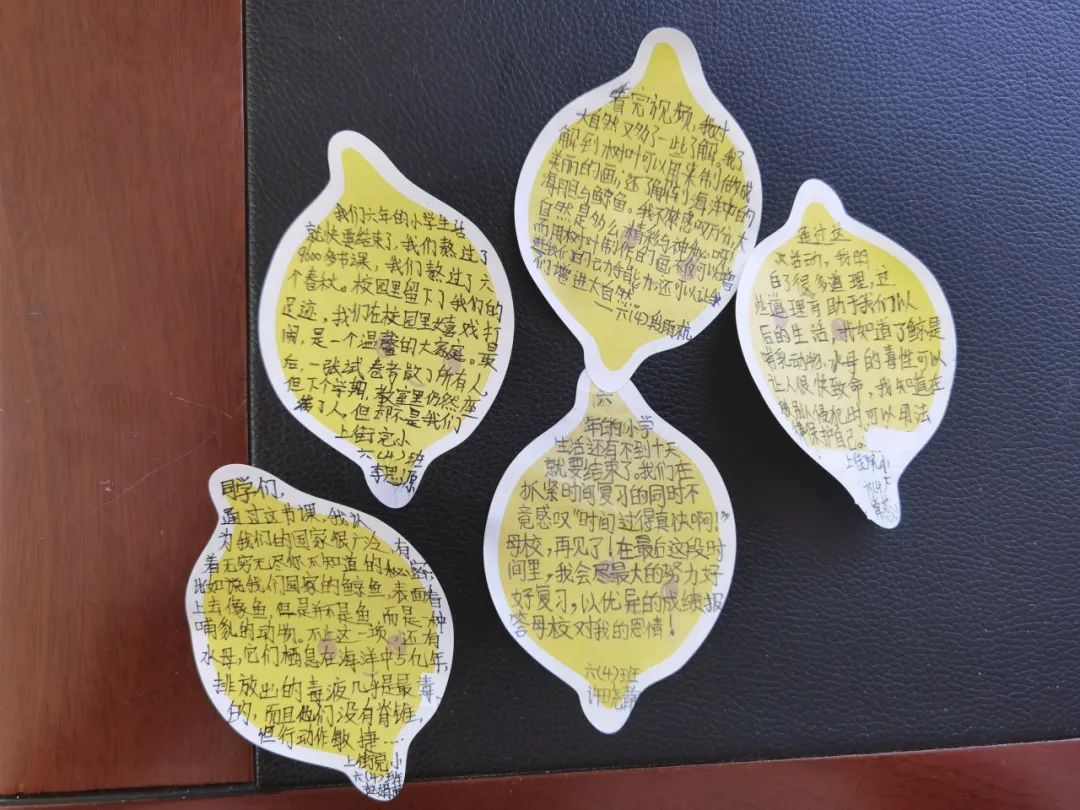 我们六年的小学生活
就快要结束了,我们熬过了
9000多节课,我们熬过了六
个春秋。校园里留下了我们的
足迹,我们在校园里嬉戏打
闹,是一个温馨的大家庭。最
后,一张试卷考散了所有人,
但下个学期,教室里仍然坐
满了人,但却不是我们
上街完小
六(4)班
李思源
看完视频,我对
大自然又多了一些了解。我了
解到树叶可以用来制作成
美丽的画,还了解到海洋中的
海胆与鲸鱼。我不禁感叹万分,大
自然是多么精彩与神秘呀
而用树叶制作的画不仅可以增
进我们的动手能力,还可以让我
们增进大自然。
六(4)
通过这
次活动,我明
白了很多道理,这
些道理有助于我们以
后的生活,
哺乳动物,水母的毒性可以
让人很快致命,我知道在
被别人侵犯时可以用法
律保护自己。
上街完小
同学们,
通过这节课,我认
为我们的国家很广泛,有
着无穷无尽你不知道的秘密,
比如说我们国家的鲸鱼,表面看
上去像鱼,但是并不是鱼,而是一种
哺乳的动物。不止这一项,还有
水母,它们栖息在海洋中
排放出的毒液几乎是最毒
的,而且他们没有脊锥,
但行动作敏捷……
上街完小
六(4)班
六
年的小学
生活还有不到十天
就要结束了。我们在
抓紧时间复习的同时不
竟感叹“时间过得真快啊!”
母校,再见了!在最后这段时
间里,我会尽最大的努力好
好复习,以优异的成绩报
答母校对我的恩情!
六(4)班